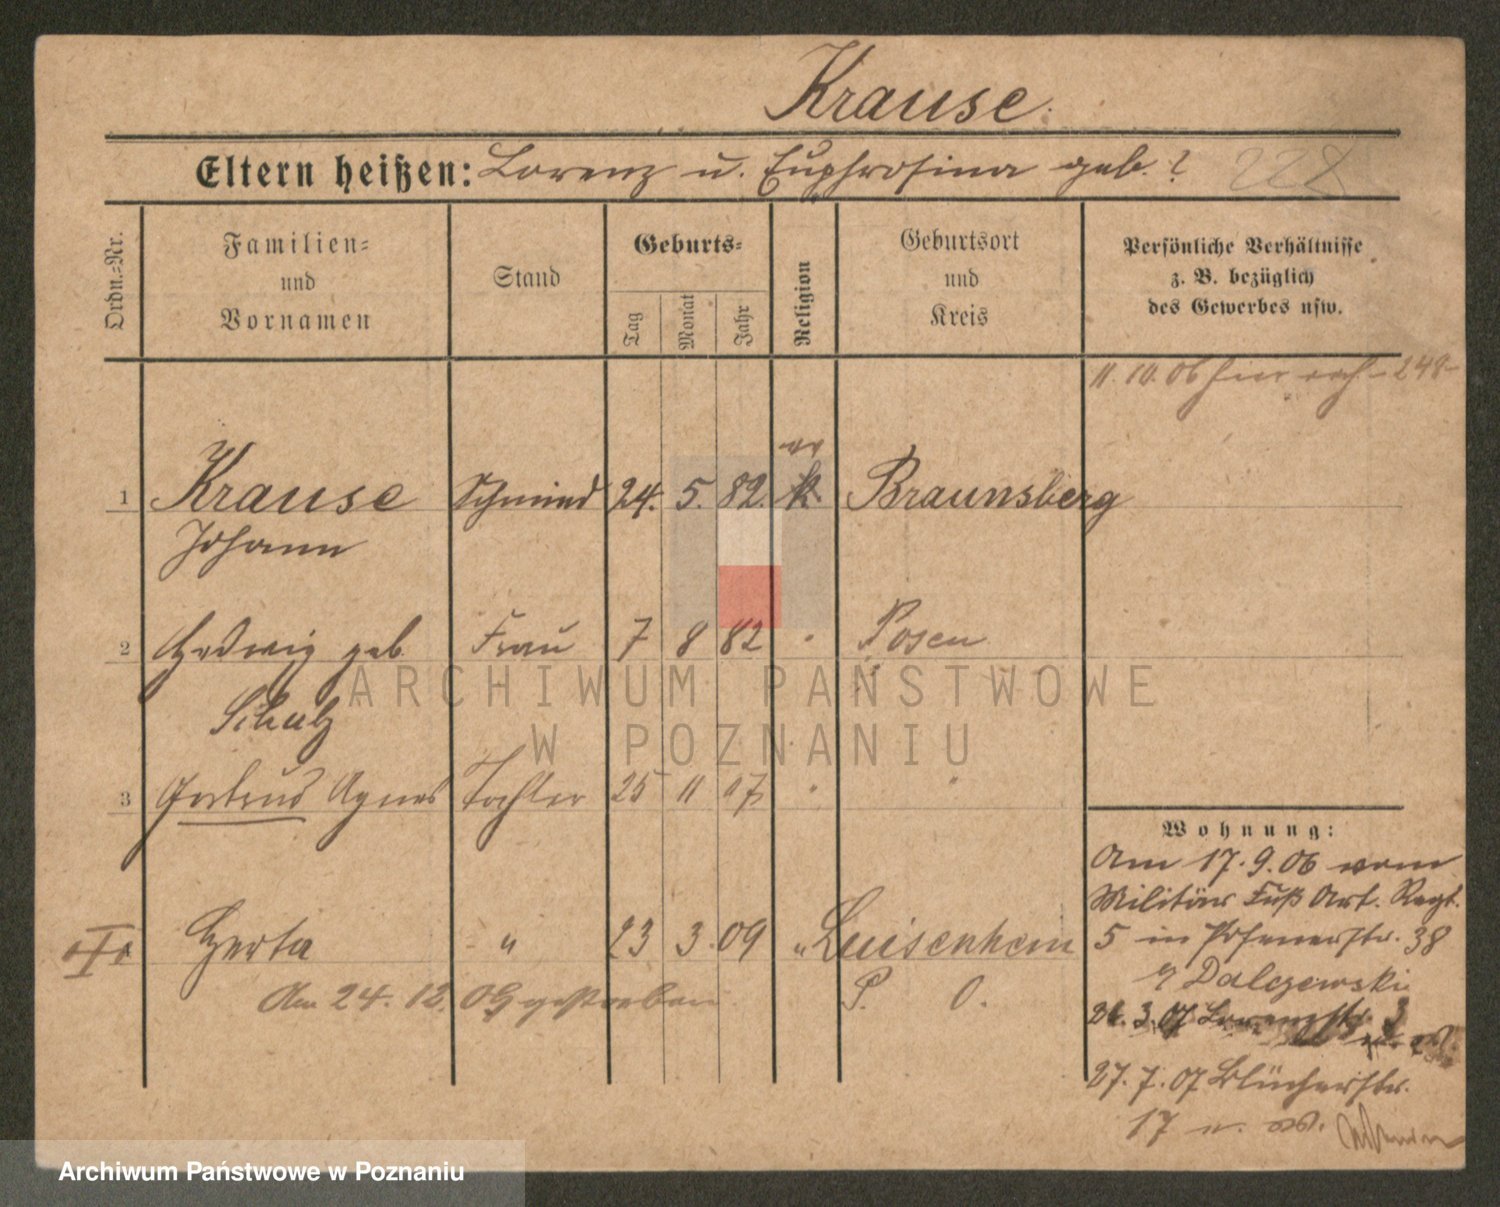 Krause
Eltern heißen: Lorenz u. Euphrosina geb. ?
228
Ordn.=Nr.
Familien=
und
Vornamen
Stand
Geburts=
Tag
Monat
Jahr
Religion
Geburtsort
und
Kreis
Persönliche Verhältnisse
z. B. bezüglich
des Gewerbes usw.
11. 10. 06 hier
1 Krause Schmied 24. 5. 82. k. Braunsberg
Johann
2 Hedwig geb. Frau 7 8 82 " Posen
Schulz
3 Gertrud Agnes Tochter 25 11 07 " "
Herta " 23 3. 09 " Luisenhein
Am 24. 12. 09 gestorben P. O.
Wohnung:
Am 17. 9. 06 vom
Militär Fuß Art. Regt.
5 in Posenerstr. 38
Dalczewski
26. 3. 07 Lorenzstr. 3
27. 7. 07 Blücherstr.
17
ARCHIWUM PAŃSTWOWE
W POZNANIU
Archiwum Państwowe w Poznaniu